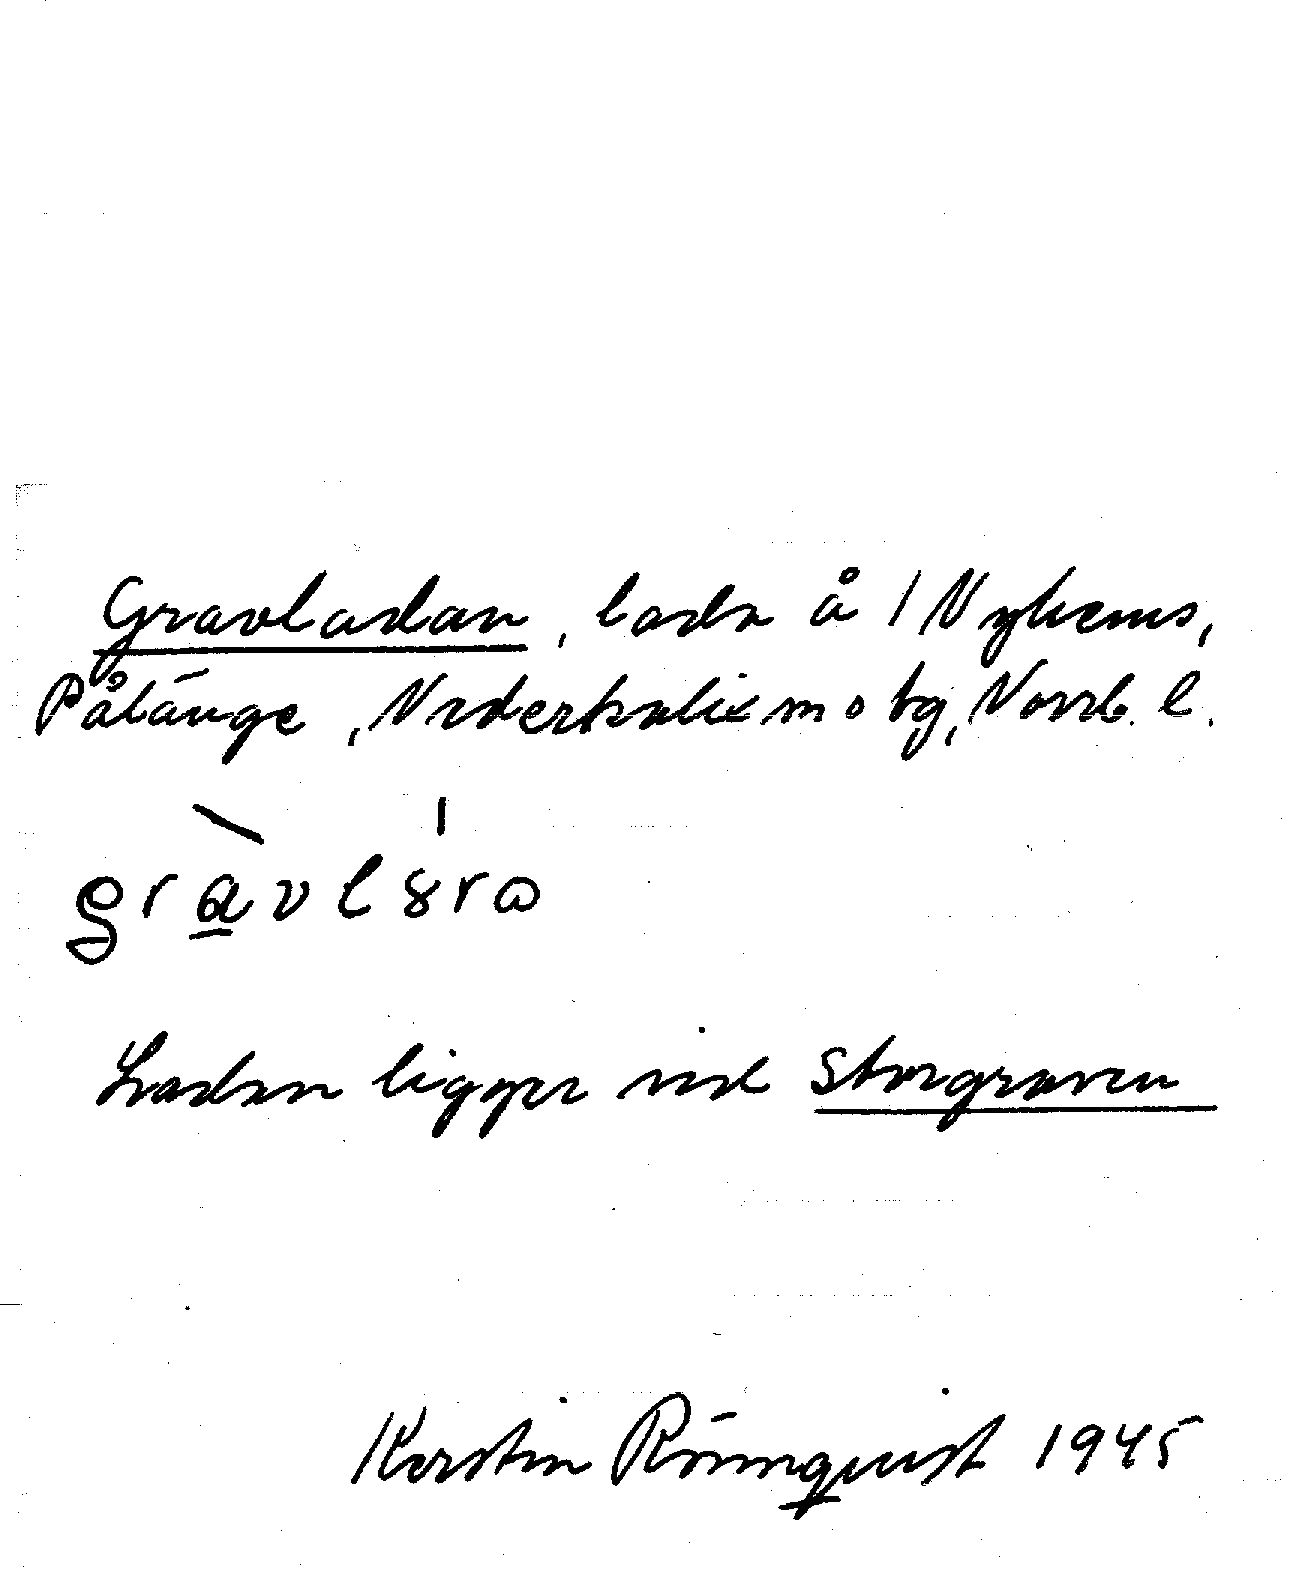 Gravladan, lada å 1 Nyhems,
Pålänge, Nederkalix m o tg, Norrb. l.
Ladan ligger vid Storgraven
Kerstin Rönnquist 1945